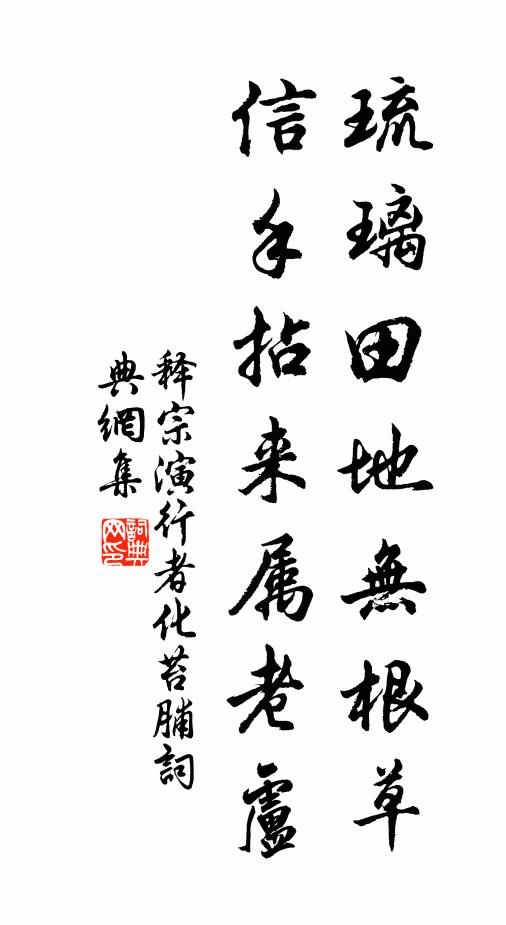 琉璃田地無根草
信手拈来属老盧
释宗演行者化苔脯詞
典網集
詞典
网印